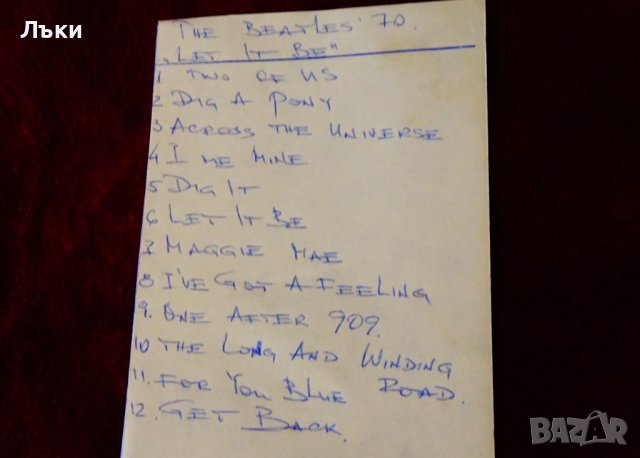 Лъки
THE BEATLES '70.
„LET IT BE"
1 TWO OF US
2 DIG A PONY
3 ACROSS THE UNIVERSE
4 I ME MINE
5 DIG IT
6 LET IT BE
7 MAGGIE MAE
8 I'VE GOT A FEELING
9. ONE AFTER 909.
10 THE LONG AND WINDING
ROAD.
11. FOR YOU BLUE
12. GET BACK.
BAZAR